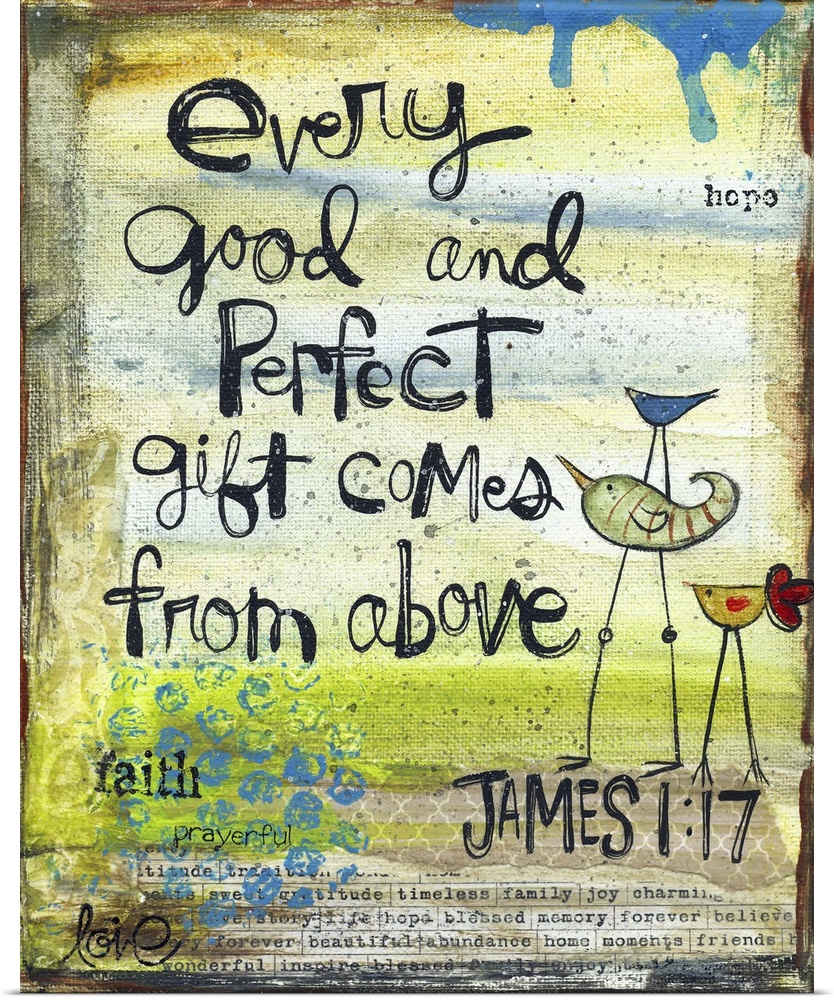 every
hope
good and
Perfect
gift comes
from above
faith
JAMES 1:17
prayerful
sweet gratitude timeless family joy charming
story life hope blessed memory forever believe
love
forever beautiful abundance home moments friends
wonderful inspire blessed family enjoy